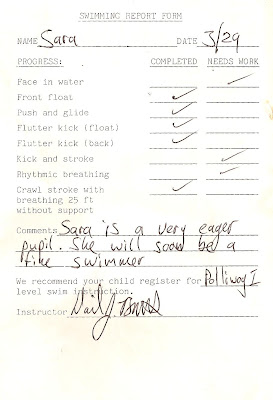 SWIMMING REPORT FORM
NAME Sara DATE 3/29
PROGRESS: COMPLETED NEEDS WORK
Face in water ✓
Front float ✓
Push and glide ✓
Flutter kick (float) ✓
Flutter kick (back) ✓
Kick and stroke ✓
Rhythmic breathing ✓
Crawl stroke with ✓
breathing 25 ft
without support
Comments Sara is a very eager
pupil. She will soon be a
fine swimmer
We recommend your child register for Polliwog I
level swim instruction.
Instructor